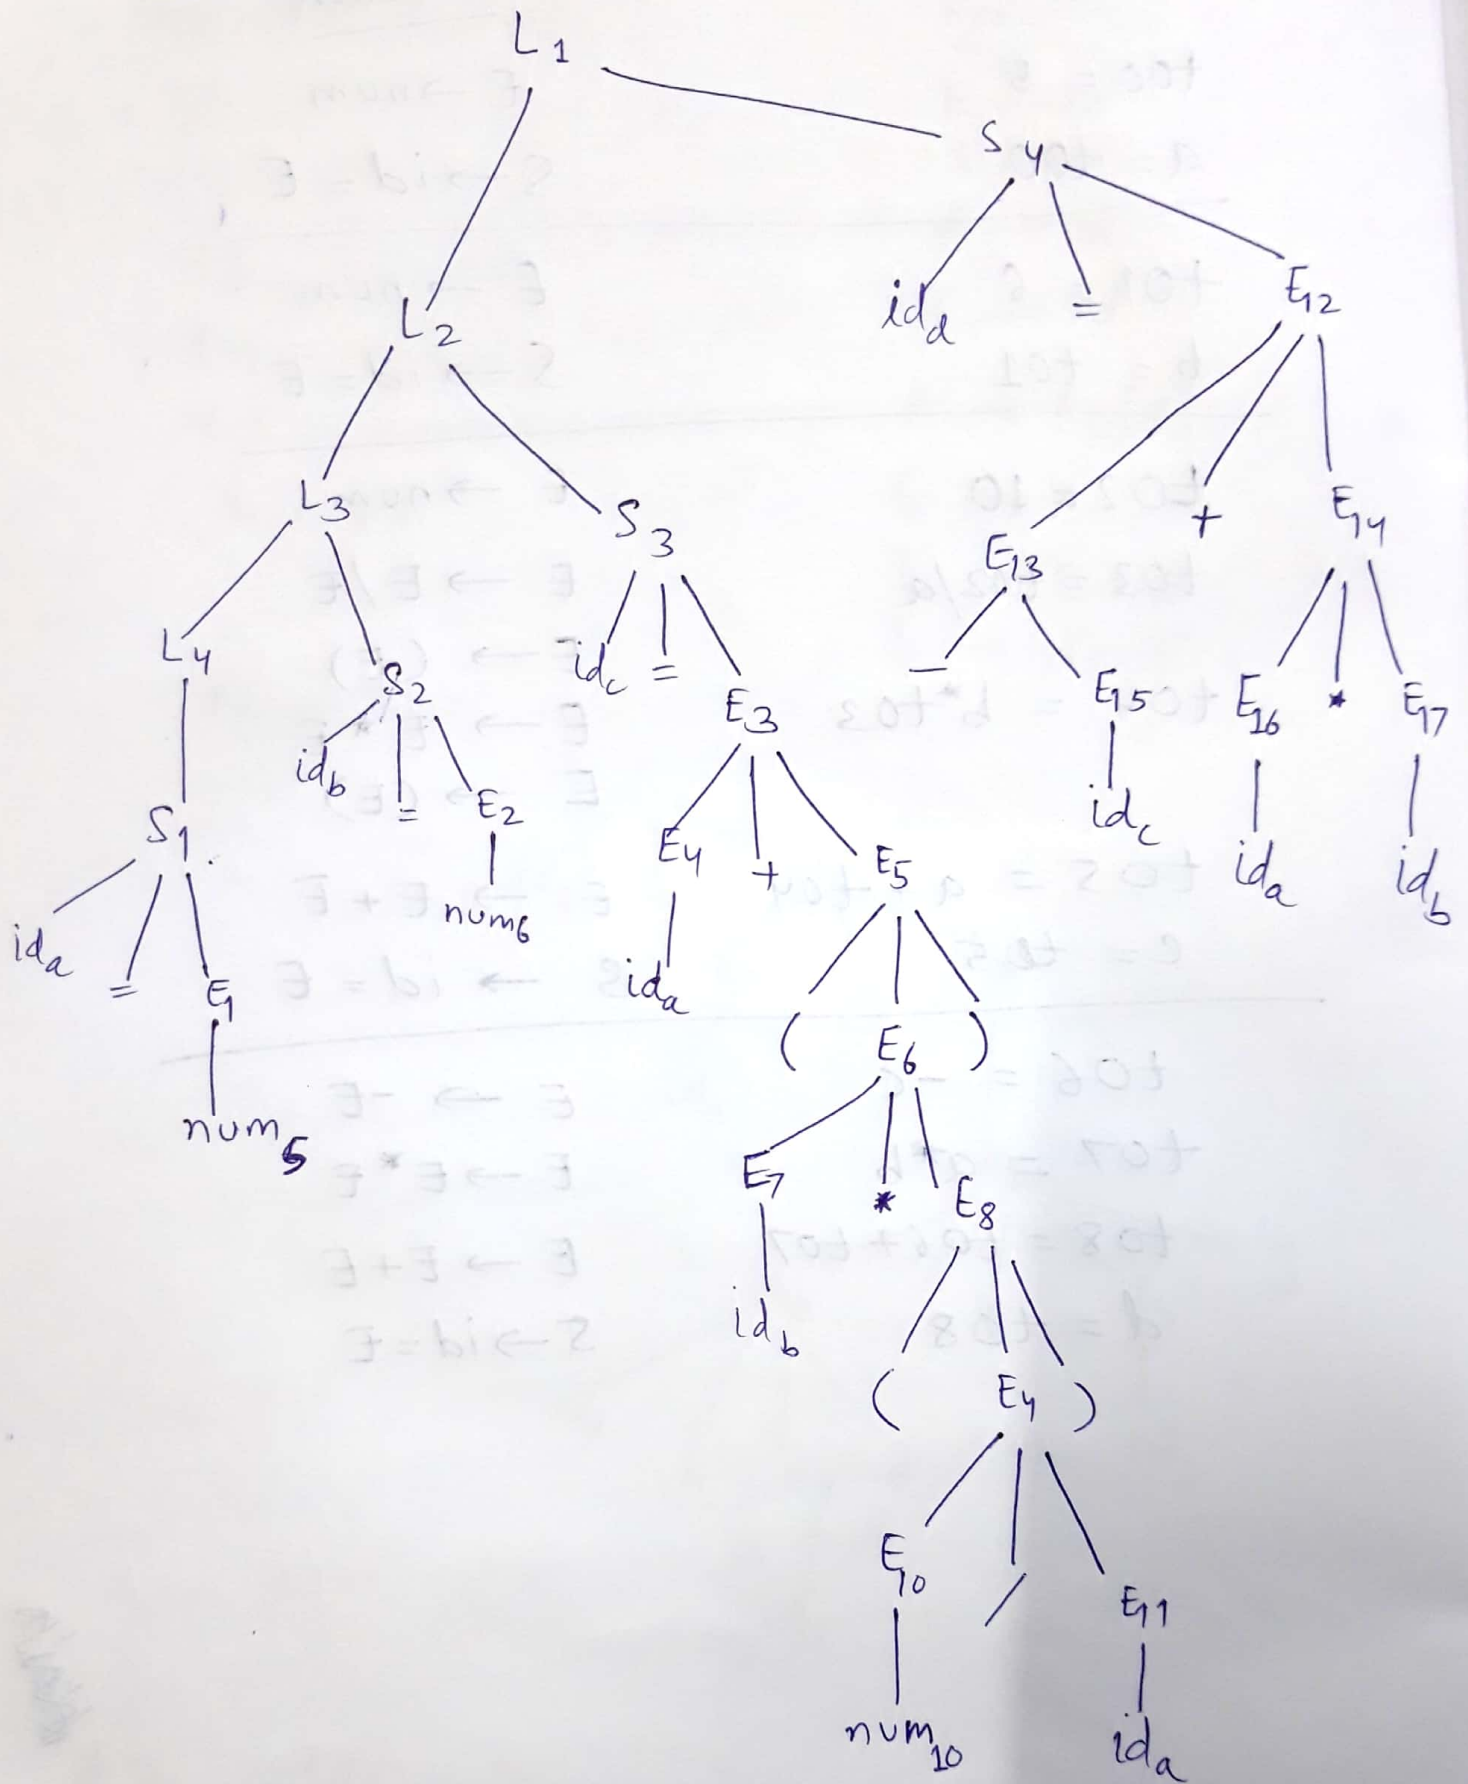 L1
S4
idd = E12
L2
L3 S3 E13 + E14
L4 S2 idc = E3 - E15 E16 * E17
idb = E2 idc ida idb
S1 E4 + E5
ida = E1 num6 ida ( E6 )
num5 E7 * E8
idb ( E4 )
E10 / E11
num10 ida